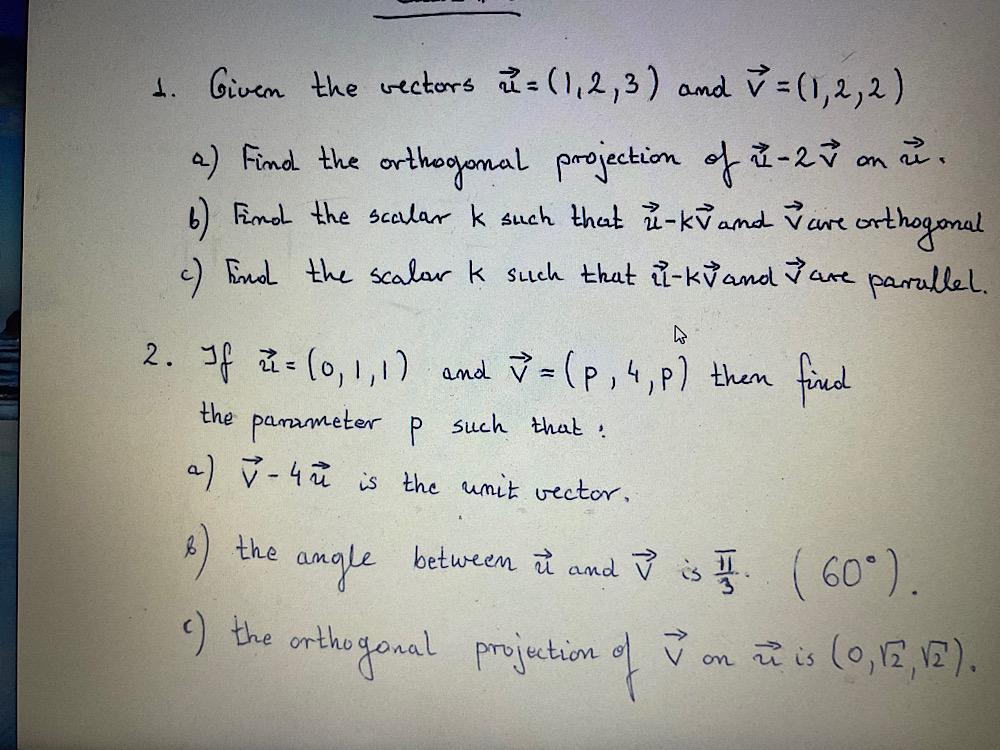 1. Given the vectors u⃗=(1,2,3) and v⃗=(1,2,2)
a) Find the orthogonal projection of u⃗-2v⃗ on u⃗.
b) Find the scalar k such that u⃗-kv⃗ and v⃗ are orthogonal
c) Find the scalar k such that u⃗-kv⃗ and v⃗ are parallel.
2. If u⃗=(0,1,1) and v⃗=(p,4,p) then find
the parameter p such that:
a) v⃗-4u⃗ is the unit vector.
b) the angle between u⃗ and v⃗ is π/3. (60°).
c) the orthogonal projection of v⃗ on u⃗ is (0,√2,√2).